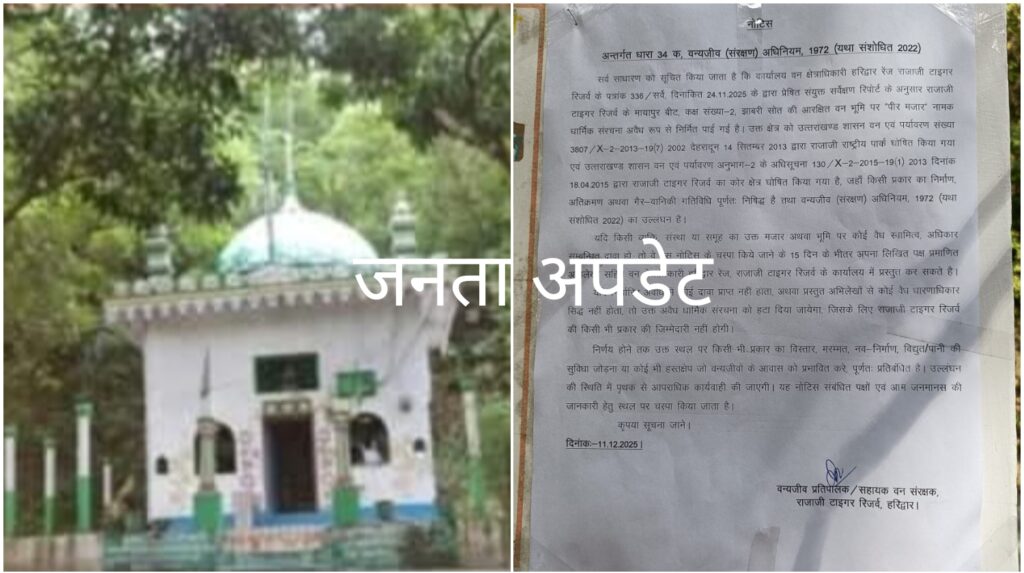 नोटिस
अन्तर्गत धारा 34 क, वन्यजीव (संरक्षण) अधिनियम, 1972 (यथा संशोधित 2022)
सर्व साधारण को सूचित किया जाता है कि कार्यालय वन क्षेत्राधिकारी हरिद्वार रेंज राजाजी टाइगर
रिजर्व के पत्रांक 336/सर्वे, दिनांकित 24.11.2025 के द्वारा प्रेषित संयुक्त सर्वेक्षण रिपोर्ट के अनुसार राजाजी
टाइगर रिजर्व के मायापुर बीट, कक्ष संख्या-2, झाबरी सोत की आरक्षित वन भूमि पर "पीर मजार" नामक
धार्मिक संरचना अवैध रूप से निर्मित पाई गई है। उक्त क्षेत्र को उत्तराखण्ड शासन वन एवं पर्यावरण संख्या
3807/X-2-2013-19(7) 2002 देहरादून 14 सितम्बर 2013 द्वारा राजाजी राष्ट्रीय पार्क घोषित किया गया
एवं उत्तराखण्ड शासन वन एवं पर्यावरण अनुभाग-2 के अधिसूचना 130/X-2-2015-19(1) 2013 दिनांक
18.04.2015 द्वारा राजाजी टाइगर रिजर्व का कोर क्षेत्र घोषित किया गया है, जहाँ किसी प्रकार का निर्माण,
अतिक्रमण अथवा गैर-वानिकी गतिविधि पूर्णतः निषिद्ध है तथा वन्यजीव (संरक्षण) अधिनियम, 1972 (यथा
संशोधित 2022) का उल्लंघन है।
यदि किसी व्यक्ति, संस्था या समूह का उक्त मजार अथवा भूमि पर कोई वैध स्वामित्व, अधिकार
सम्बन्धित दावा हो, तो वे इस नोटिस के चस्पा किये जाने के 15 दिन के भीतर अपना लिखित पक्ष प्रमाणित
वन हरिद्वार रेंज, राजाजी टाइगर रिजर्व के कार्यालय में प्रस्तुत कर सकते है।
जनता अपडेट
कोई दावा प्राप्त नहीं होता, अथवा प्रस्तुत अभिलेखों से कोई वैध धारणाधिकार
सिद्ध नहीं होता, तो उक्त अवैध धार्मिक संरचना को हटा दिया जायेगा, जिसके लिए राजाजी टाइगर रिजर्व
की किसी भी प्रकार की जिम्मेदारी नहीं होगी।
निर्णय होने तक उक्त स्थल पर किसी भी प्रकार का विस्तार, मरम्मत, नव-निर्माण, विद्युत/पानी की
सुविधा जोड़ना या कोई भी हस्तक्षेप जो वन्यजीवों के आवास को प्रभावित करे, पूर्णतः प्रतिबंधित है। उल्लंघन
की स्थिति में पृथक से आपराधिक कार्यवाही की जाएगी। यह नोटिस संबंधित पक्षों एवं आम जनमानस की
जानकारी हेतु स्थल पर चस्पा किया जाता है।
कृपया सूचना जाने।
दिनांक:-11.12.2025।
वन्यजीव प्रतिपालक/सहायक वन संरक्षक,
राजाजी टाइगर रिजर्व, हरिद्वार।